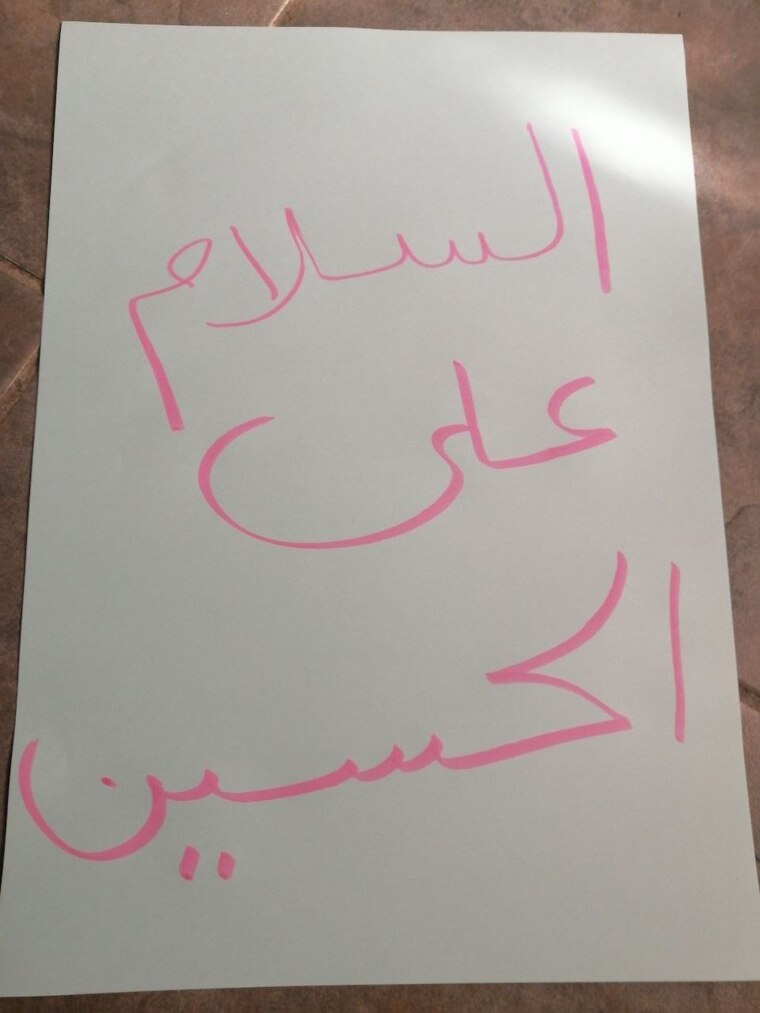 السلام
على
الحسين